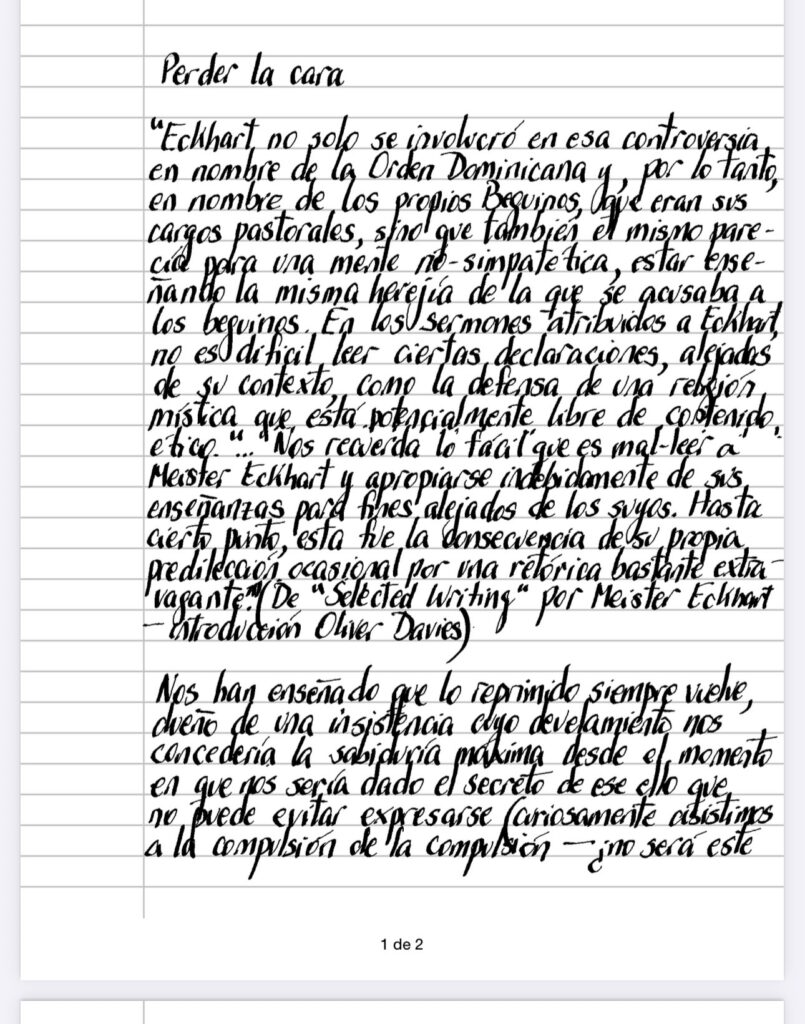 Perder la cara
"Eckhart no solo se involucró en esa controversia
en nombre de la Orden Dominicana y, por lo tanto,
en nombre de los propios Beguinos, que eran sus
cargos pastorales, sino que también él mismo pare-
cía para una mente no-simpatética, estar ense-
ñando la misma herejía de la que se acusaba a
los beguinos. En los sermones atribuidos a Eckhart,
no es difícil leer ciertas declaraciones, alejadas
de su contexto, como la defensa de una religión
mística que está potencialmente libre de contenido
ético."..." Nos recuerda lo fácil que es mal-leer a
Meister Eckhart y apropiarse indebidamente de sus
enseñanzas para fines alejados de los suyos. Hasta
cierto punto, esta fue la consecuencia de su propia
predilección ocasional por una retórica bastante extra-
vagante." (De "Selected Writing" por Meister Eckhart
- introducción Oliver Davies)
Nos han enseñado que lo reprimido siempre vuelve,
dueño de una insistencia cuyo develamiento nos
concedería la sabiduría máxima desde el momento
en que nos sería dado el secreto de ese ello que
no puede evitar expresarse (curiosamente asistimos
a la compulsión de la compulsión — ¿no será este
1 de 2